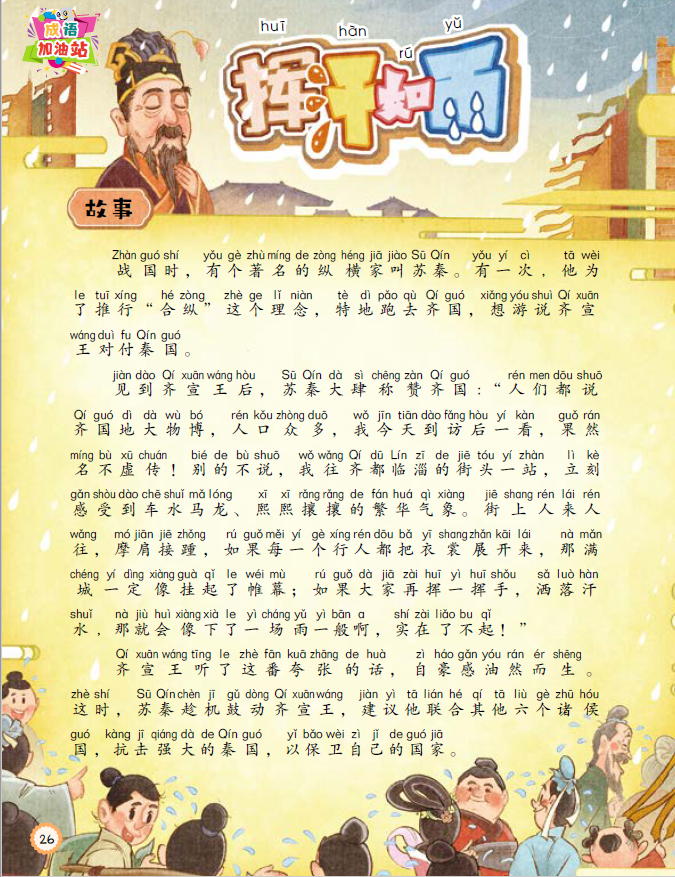 成语
加油站
huī hàn rú yǔ
挥汗如雨
故事
Zhàn guó shí yǒu gè zhù míng de zòng héng jiā jiào Sū Qín yǒu yí cì tā wèi
战国时，有个著名的纵横家叫苏秦。有一次，他为
le tuī xíng hé zòng zhè ge lǐ niàn tè dì pǎo qù Qí guó xiǎng yóu shuì Qí xuān
了推行“合纵”这个理念，特地跑去齐国，想游说齐宣
wáng duì fu Qín guó
王对付秦国。
jiàn dào Qí xuān wáng hòu Sū Qín dà sì chēng zàn Qí guó rén men dōu shuō
见到齐宣王后，苏秦大肆称赞齐国：“人们都说
Qí guó dì dà wù bó rén kǒu zhòng duō wǒ jīn tiān dào fǎng hòu yí kàn guǒ rán
齐国地大物博，人口众多，我今天到访后一看，果然
míng bù xū chuán bié de bù shuō wǒ wǎng Qí dū Lín zī de jiē tóu yí zhàn lì kè
名不虚传！别的不说，我往齐都临淄的街头一站，立刻
gǎn shòu dào chē shuǐ mǎ lóng xī xī rǎng rǎng de fán huá qì xiàng jiē shang rén lái rén
感受到车水马龙、熙熙攘攘的繁华气象。街上人来人
wǎng mó jiān jiē zhǒng rú guǒ měi yí gè xíng rén dōu bǎ yī shang zhǎn kāi lái nà mǎn
往，摩肩接踵，如果每一个行人都把衣裳展开来，那满
chéng yí dìng xiàng guà qǐ le wéi mù rú guǒ dà jiā zài huī yì huī shǒu sǎ luò hàn
城一定像挂起了帷幕；如果大家再挥一挥手，洒落汗
shuǐ nà jiù huì xiàng xià le yì cháng yǔ yì bān a shí zài liǎo bu qǐ
水，那就会像下了一场雨一般啊，实在了不起！”
Qí xuān wáng tīng le zhè fān kuā zhāng de huà zì háo gǎn yóu rán ér shēng
齐宣王听了这番夸张的话，自豪感油然而生。
zhè shí Sū Qín chèn jī gǔ dòng Qí xuān wáng jiàn yì tā lián hé qí tā liù gè zhū hóu
这时，苏秦趁机鼓动齐宣王，建议他联合其他六个诸侯
guó kàng jī qiáng dà de Qín guó yǐ bǎo wèi zì jǐ de guó jiā
国，抗击强大的秦国，以保卫自己的国家。
26